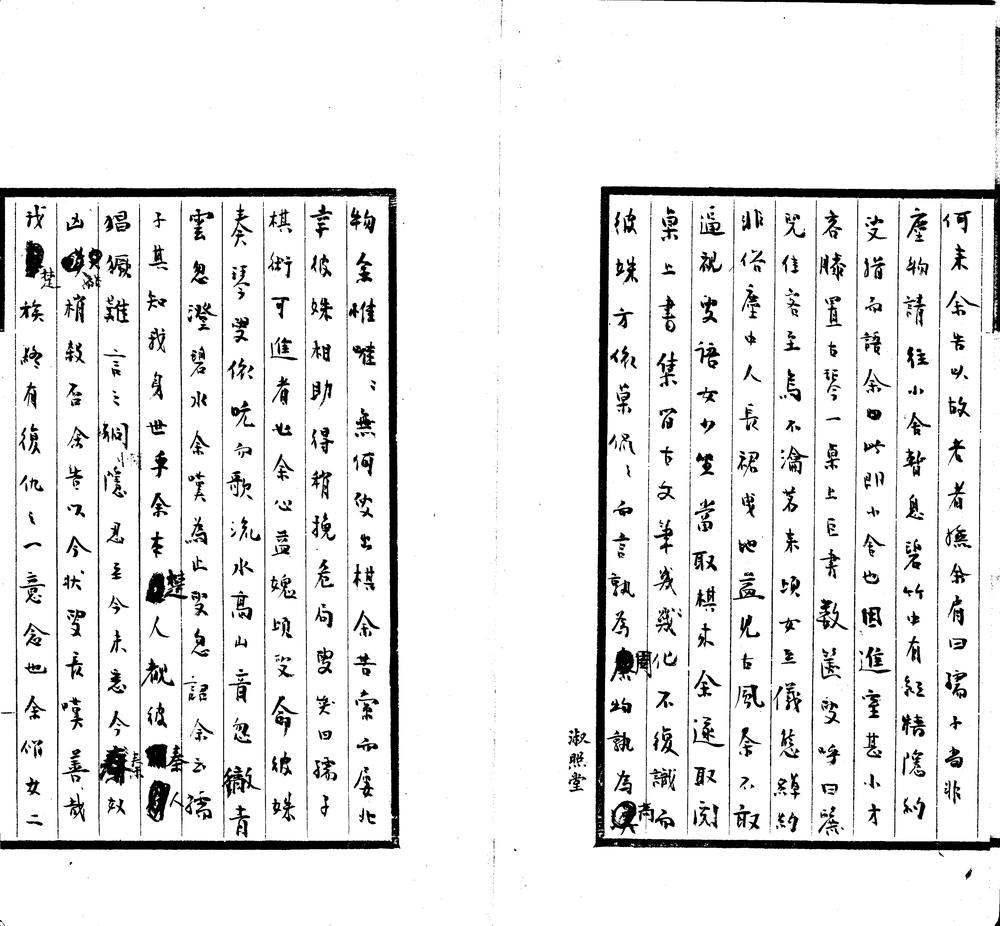 何來余告以故老者撫余肩曰孺子當非
塵物請往小舍暫息碧竹中有紅牆隱約
叟指而語余曰此即小舍也因進室甚小才
容膝置古琴一桌上巨書數篋叟呼曰
兒佳客至烏不瀹茗來頃女至儀態綽約
非俗塵中人長裙曳地益見古風余不敢
逼視叟語女少坐當取棋來余遂取閱
桌上書集皆古文筆幾幾化不復識而
彼姝方依桌侃々而言孰為周物孰為商
淑照堂
物余惟唯々無何叟出棋余苦索而屢北
幸彼姝相助得稍挽危局叟笑曰孺子
棋術可進者也余心益媿頃叟命彼姝
奏琴叟依吭而歌流水高山音忽徹青
雲忽澄碧水余嘆為止叟忽詔余云孺
子其知我身世乎余本楚人覩彼秦人
猖獗難言之恫隱忍至今未悉今秦奴
凶燄稍殺否余告以今狀叟長嘆善哉
我楚族終有復仇之一意念也余偕女二